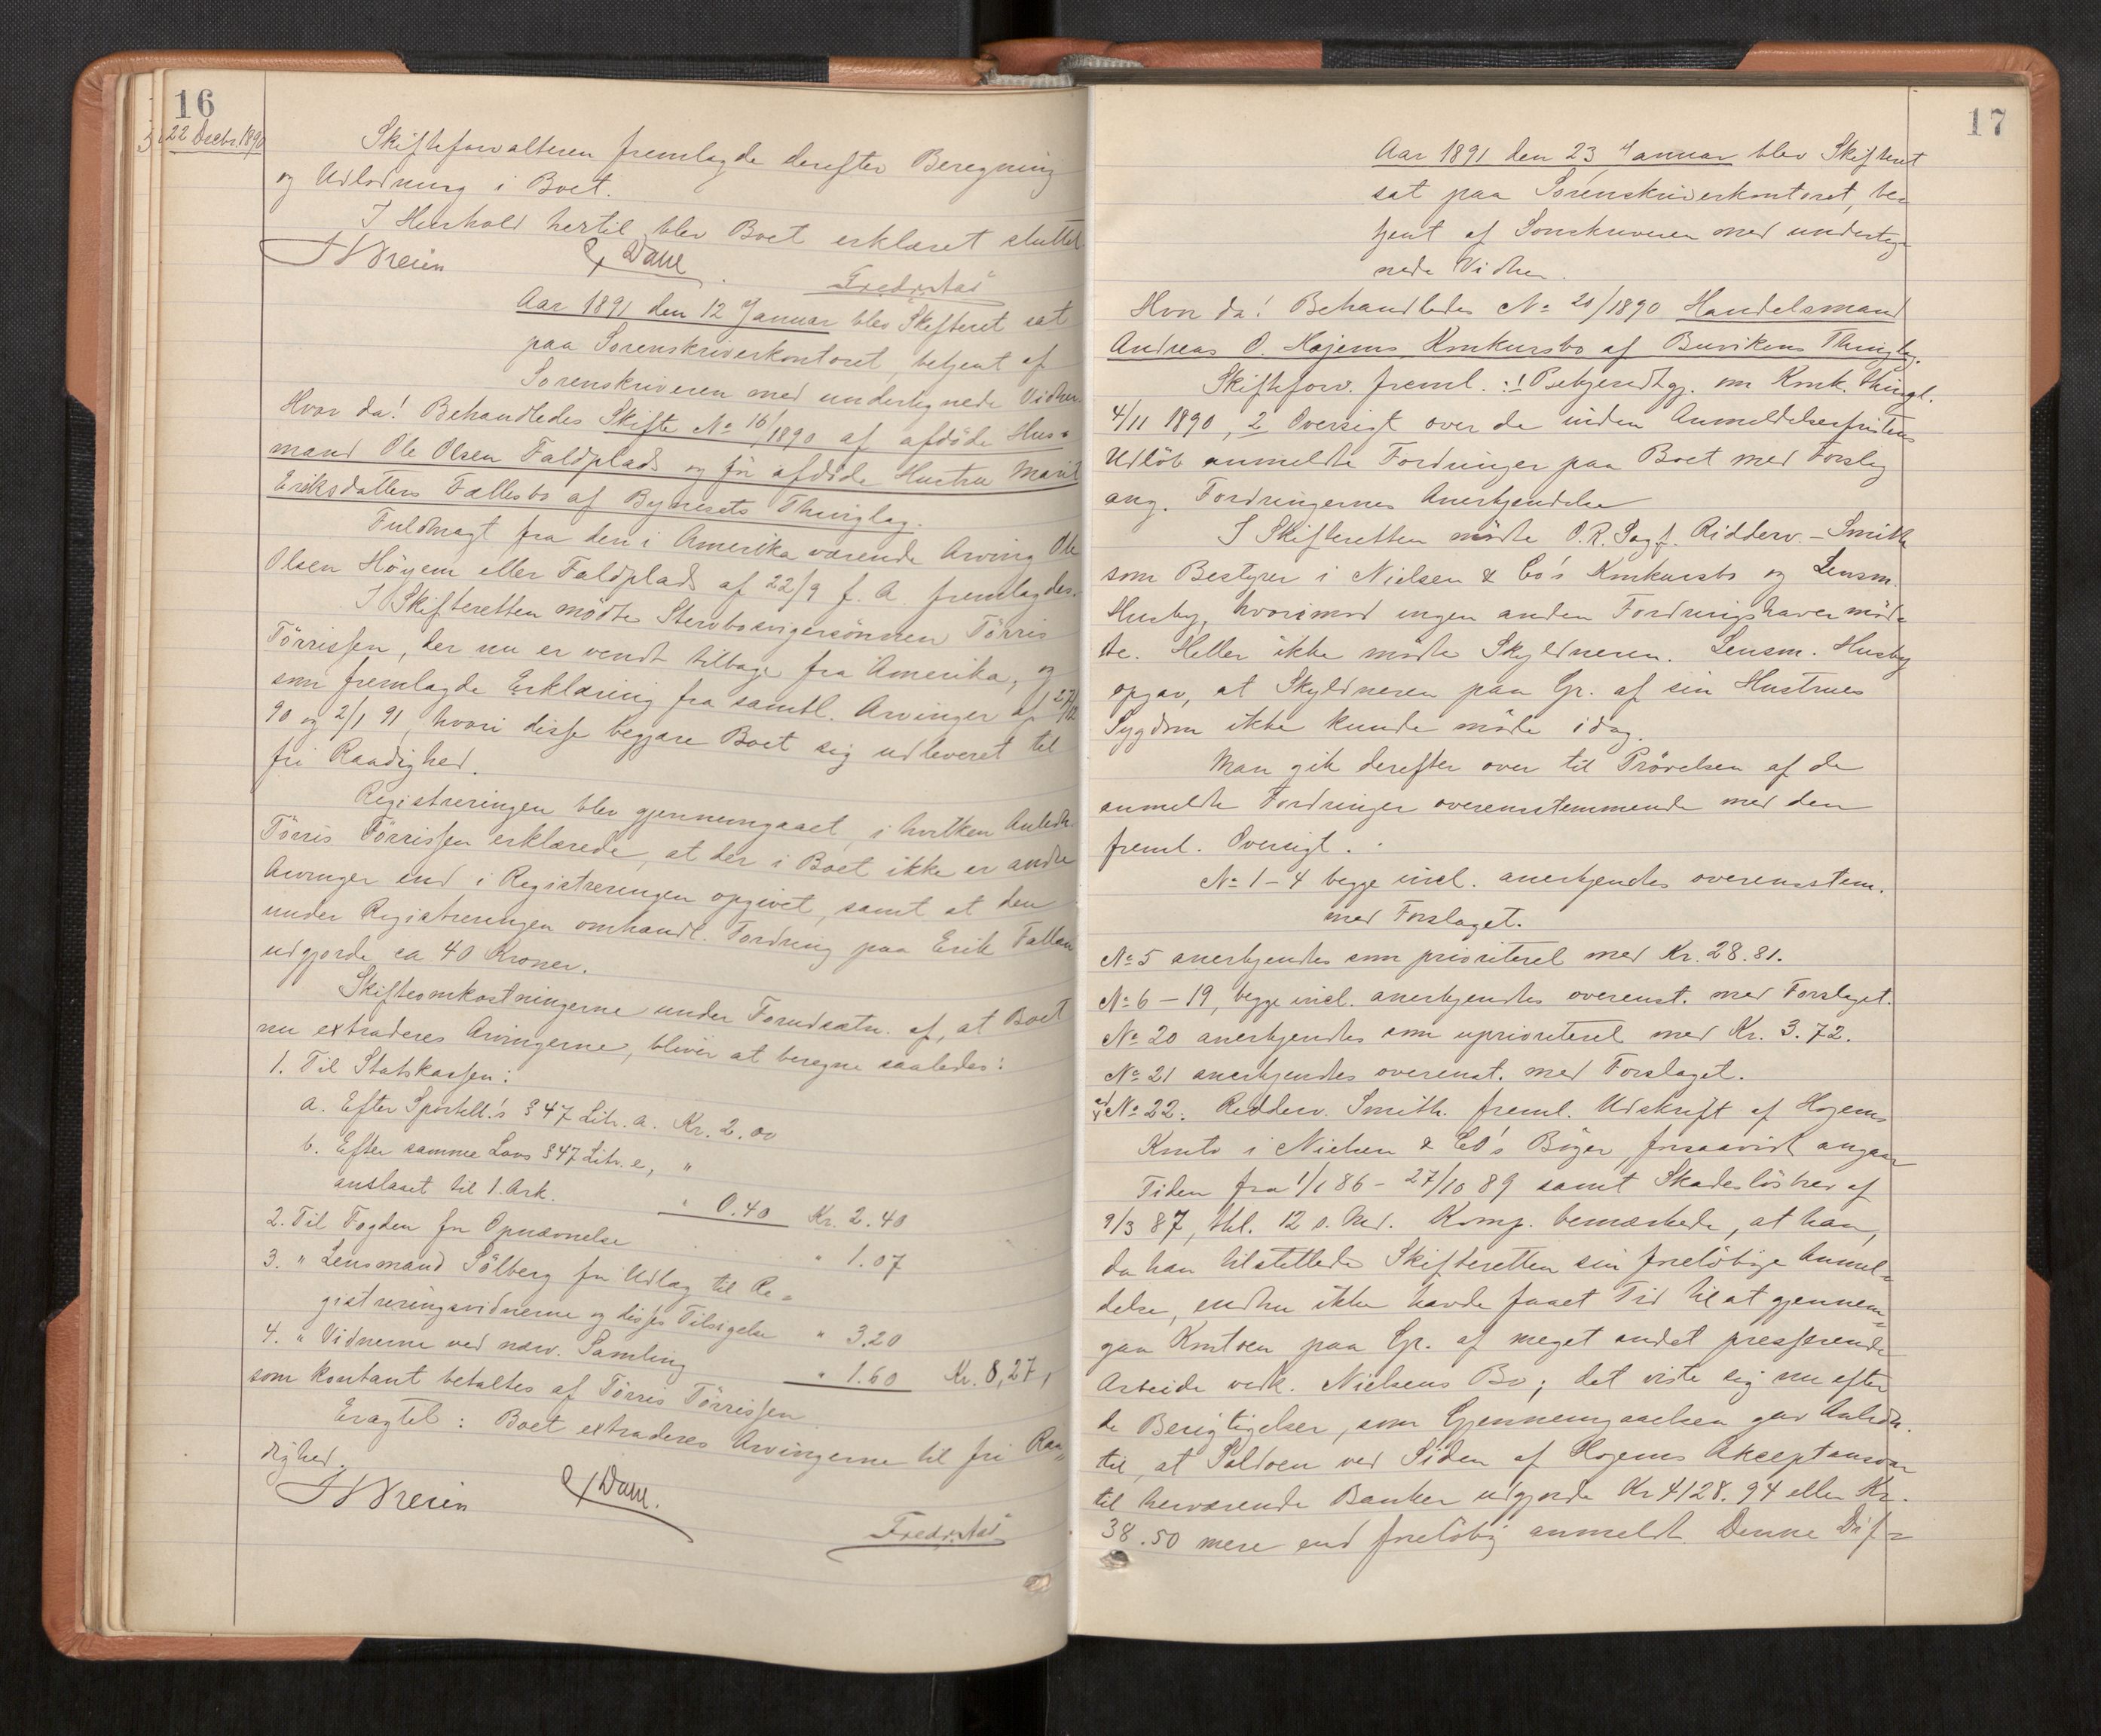 16
22 Decbr. 1890
Skifteforvalteren fremlagde derefter Beregning
og Udlodning i Boet.
I Henhold hertil blev Boet erklæret sluttet
Dahl
Aar 1891 den 12 Januar blev Skifteret sat
paa Sorenskriverkontoret, betjent af
Sorenskriveren med undertegnede Vidner.
Hvor da! Behandledes Skifte No 16/1890 af afdöde Hus=
mand Ole Olsen Faldplads og før afdöde Hustru Marit
Eriksdatters Fællesbo af Bynesets Thinglag.
Fuldmagt fra den i Amerika værende Arving Ole
Olsen Höyem eller Faldplads af 22/9 f. A fremlagdes.
I Skifteretten mödte Stervbosvigersönnen Törris
Törrissen, der nu er vendt tilbage fra Amerika, og
som fremlagde Erklæring fra samtl. Arvinger af 27/12
90 og 2/1 91, hvori disse begjære Boet sig udleveret til
fri Raadighed.
Registreringen blev gjennemgaaet, i hvilken Anledn.
Törris Törrissen erklærede, at der i Boet ikke er andre
Arvinger end i Registreringen opgivet, samt at den
under Registreringen omhandl. Fordring paa Erik Fallan
udgjorde ca 40 Kroner.
Skifteomkostningerne under Forudsætn. af, at Boet
nu extraderes Arvingerne, bliver at beregne saaledes:
1. Til Statskassen:
a. Efter Sportell.'s § 47 Litr. a. Kr. 2.00
b. Efter samme Lovs § 47 Litr. e, "
anslaaet til 1. Ark. " 0.40 Kr. 2.40
2. Til Fogden for Opnævnelse " 1.07
3. " Lensmand Sölberg for Udlæg til Re=
gistreringsvidnerne og disses Tilsigelse " 3.20
4. " Vidnerne ved nærv. Samling " 1.60 Kr. 8,27,
som kontant betaltes af Törris Törrissen
Eragtet: Boet extraderes Arvingerne til fri Raa=
dighed.
Dahl.
17
Aar 1891 den 23 Januar blev Skifteret
sat paa Sorenskriverkontoret, be=
tjent af Sorenskriveren med underteg=
nede Vidner.
Hvor da! Behandledes No 20/1890 Handelsmand
Andreas O. Højems Konkursbo af Buvikens Thinglag.
Skifteforv. freml. :1 Bekjendtgj. om Konk. thingl.
4/11 1890, 2 Oversigt over de inden Anmeldelsesfristens
Udlöb anmeldte Fordringer paa Boet med Forslag
ang. Fordringernes Anerkjendelse
I Skifteretten mödte O.R. Sagf. Ridderv.-Smith
som Bestyrer i Nielsen & Co's Konkursbo og Lensm.
Husby, hvorimod ingen anden Fordringshaver möd=
te. Heller ikke mödte Skyldneren. Lensm. Husby
opgav, at Skyldneren paa Gr. af sin Hustrues
Sygdom ikke kunde möde idag.
Man gik derefter over til Prövelsen af de
anmeldte Fordringer overensstemmende med den
freml. Oversigt.
No 1-4 begge incl. anerkjendes overensstem.
med Forslaget.
No 5 anerkjendtes som prioriteret med Kr. 28.81.
No 6 - 19, begge incl. anerkjendes overenst. med Forslaget.
No 20 anerkjendtes som uprioriteret med Kr. 3.72.
No 21 anerkjendtes overenst. med Forslaget.
ad No 22. Ridderv. Smith. freml. Udskrift af Højems
Konto i Nielsen & Co's Böger, forsaavidt angaar
Tiden fra 1/1 86 - 27/10 89 samt Skadeslösbrev af
9/3 87, thl. 12 s. Md. Komp. bemærkede, at han,
da han tilstillede Skifteretten sin forelöbige Anmel=
delse, endnu ikke havde faaet Tid til at gjennem=
gaa Kontoen paa Gr. af meget andet presserende
Arbeide vedk. Nielsens Bo; det viste sig nu efter
de Berigtigelser, som Gjennemgaaelsen gav Anledn.
til, at Saldoen ved Siden af Højems Akceptansvar
til herværende Banker udgjorde Kr 4128.94 eller Kr.
38.50 mere end forelöbig anmeldt. Denne Dif=